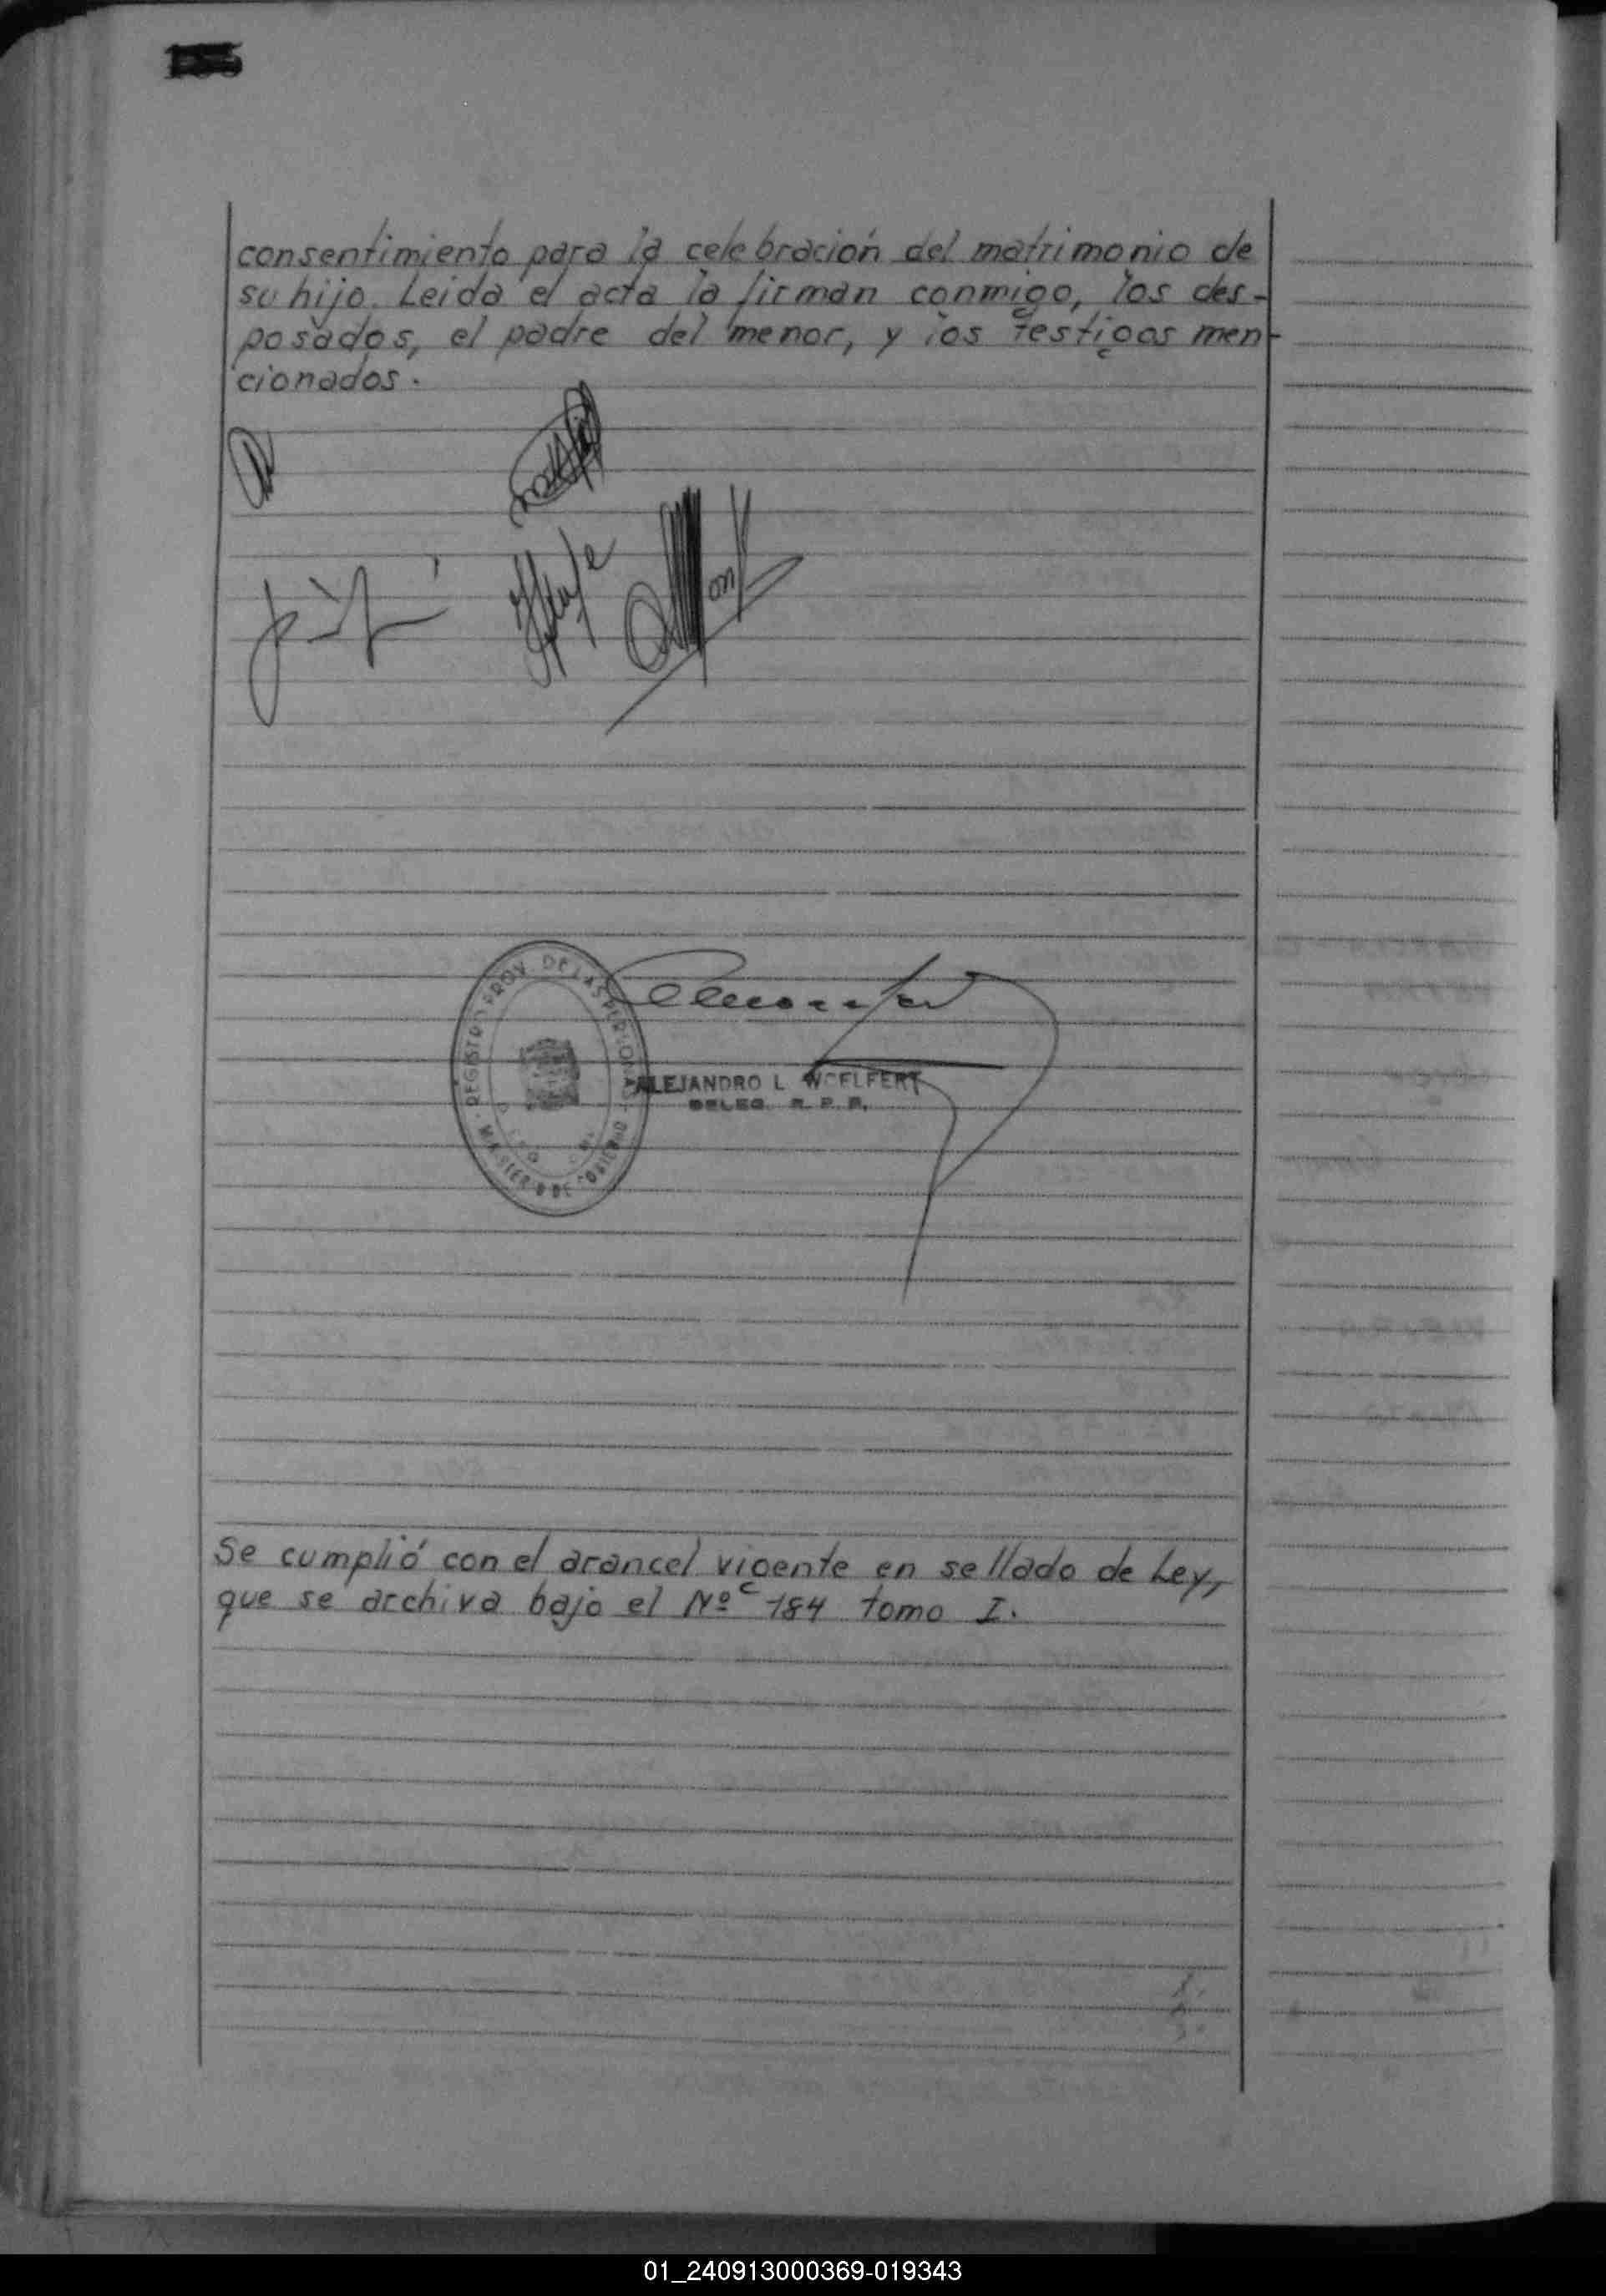 consentimiento para la celebración del matrimonio de
su hijo. Leida el acta la firman conmigo, los des-
posados, el padre del menor, y los testigos men-
cionados.
REGISTRO PROV. DE LAS PERSONAS
MINISTERIO DE GOBIERNO
ALEJANDRO L. WOELFERT
DELEG. R. P. P.
Se cumplió con el arancel vigente en sellado de Ley,
que se archiva bajo el Nº 184 tomo I.
01_240913000369-019343